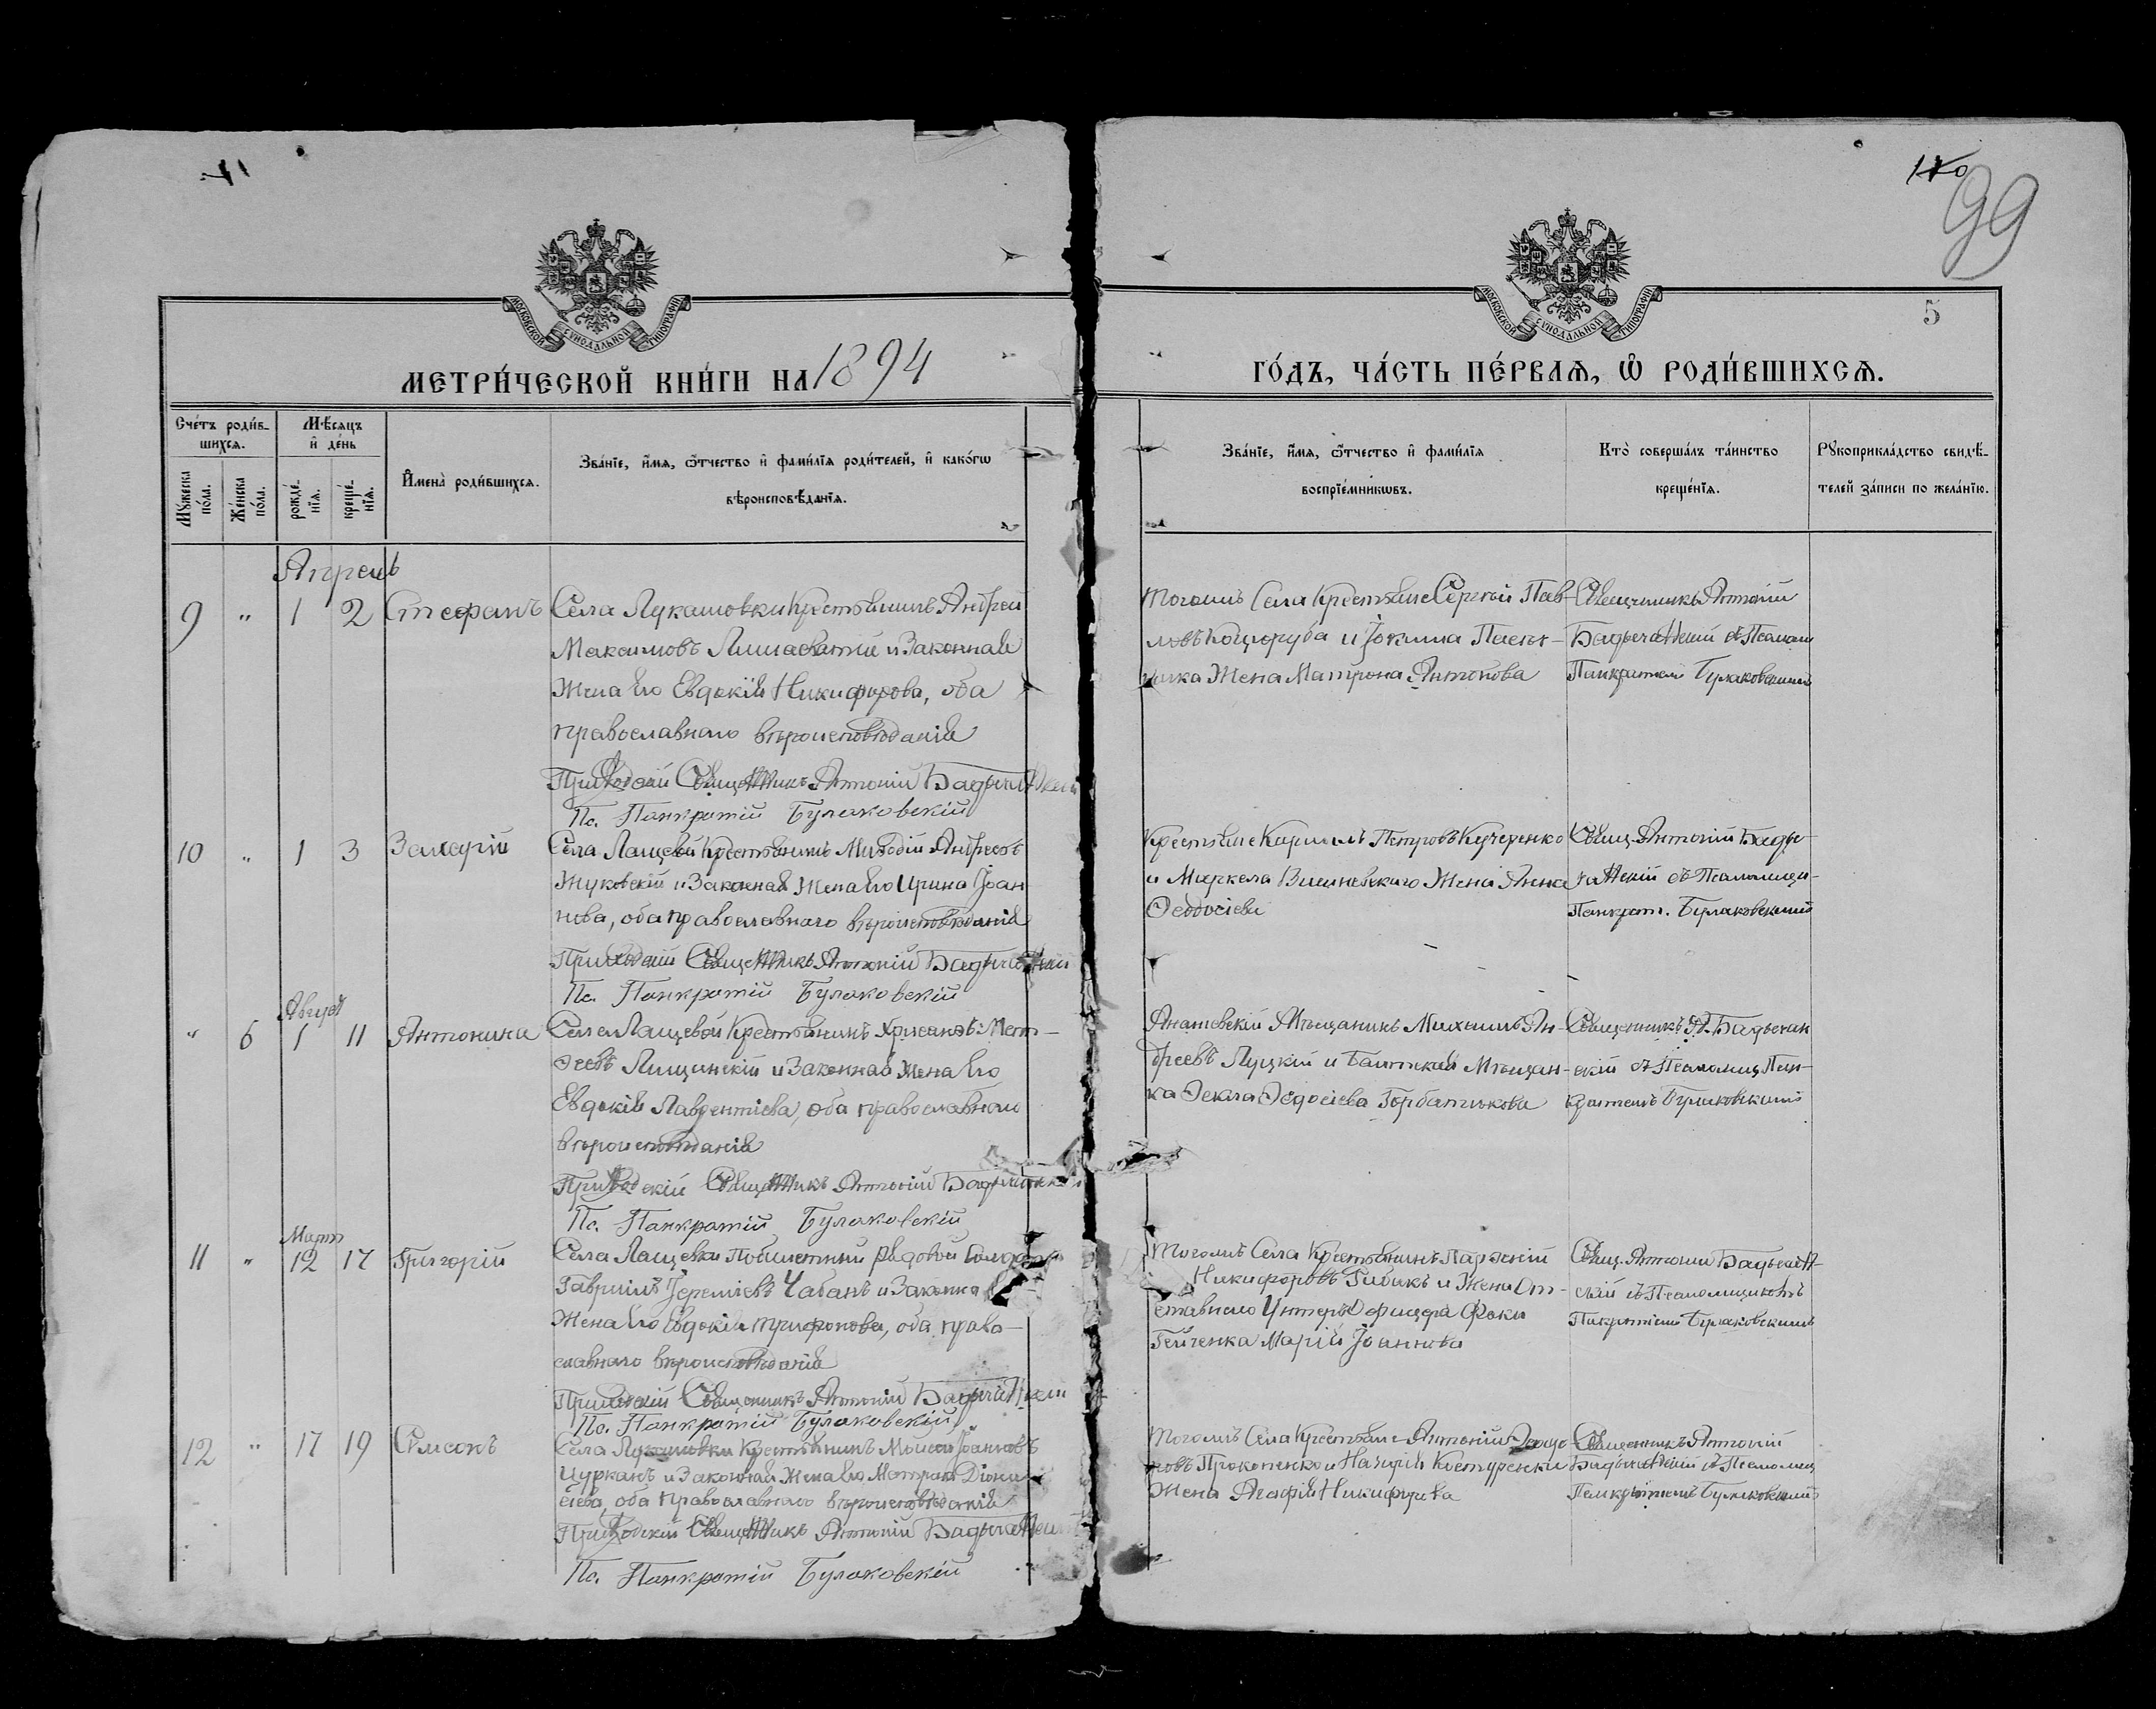 110
99
5
МОСКОВСКОЙ СУНОДАЛЬНОЙ ТИПОГРАФІИ
МОСКОВСКОЙ СУНОДАЛЬНОЙ ТИПОГРАФІИ
МЕТРИ́ЧЕСКОЙ КНИ́ГИ НА 1894
ГО́ДЪ, ЧА́СТЬ ПЕ́РВАѦ, Ѡ҆ РОДИ́ВШИХСѦ.
Сче́тъ роди́в-
шихсѧ.
Мѣ́сѧцъ
и҆ де́нь
Мꙋ́жеска по́ла.
Же́нска по́ла.
рожде́-
нїѧ.
креще́-
нїѧ.
И҆мена̀ роди́вшихсѧ.
Зва́нїе, и҆́мѧ, ѻ҆́тчество и҆ фами́лїѧ роди́телей, и҆ како́гѡ
вѣроисповѣ́данїѧ.
Зва́нїе, и҆́мѧ, ѻ҆́тчество и҆ фами́лїѧ
воспрїе́мникѡвъ.
Кто̀ соверша́лъ та́инство
креще́нїѧ.
Рꙋкоприкла́дство свидѣ́-
телей за́писи по жела́нїю.
Апрель
9 " 1 2 Стефанъ
Села Лукашовки Крестьянинъ Андрей
Максимовъ и Законная
Жена его Евдокія Никифорова, оба
православнаго вѣроисповѣданія
Приходскій Священникъ Антоній
Пс. Панкратій Булаковскій
Тогожъ Села Крестьяне Сергій Пав-
ловъ Коцюруба и Іокима
Жена Матрона Антонова
Священникъ Антоній
съ Псалом
Панкратіемъ Булаковскимъ
10 " 1 3 Захарій
Села Лащевой Крестьянинъ Меѳодій Андреевъ
Жуковскій и Законная Жена его Ирина Іоан
нова, оба православнаго вѣроисповѣданія
Приходскій Священникъ Антоній
Пс. Панкратій Булаковскій
Крестьяне Кириллъ Петровъ Кучеренко
и Маркела Вишневскаго Жена Анна
Ѳеодосіева
Свящ. Антоній
съ Псаломщи-
Панкрат. Булаковскимъ
Августъ
" 6 1 11 Антонина
Села Лащевой Крестьянинъ
Лищинскій и Законная Жена его
Евдокія Лаврентіева, оба православнаго
вѣроисповѣданія
Приходскій Священникъ Антоній
Пс. Панкратій Булаковскій
Ананьевскій Мѣщанинъ Михаилъ Ан-
дреевъ Луцкій и Балтская Мѣщан-
ка Ѳекла Ѳедосіева Горбатькова
Священникъ А.
съ Псаломщ. Пан-
кратіемъ Булаковскимъ
Мартъ
11 " 12 17 Григорій
Села Лащевки Побилетный рядовой солдатъ
Гавріилъ Іереміевъ Чабанъ и Законная
Жена его Евдокія Трифонова, оба право-
славнаго вѣроисповѣданія
Приходскій Священникъ Антоній
Пс. Панкратій Булаковскій
Тогожъ Села Крестьянинъ
Никифоровъ и Жена От-
ставного Унтеръ Офицера Фоки
Марія Іоаннова
Свящ. Антоній
скій съ Псаломщикомъ
Панкратіемъ Булаковскимъ
12 " 17 19 Самсонъ
Села Лукашовки Крестьянинъ Моисей Іоанновъ
Цурканъ и Законная Жена его Матрона Діони
сіева, оба православнаго вѣроисповѣданія
Приходскій Священникъ Антоній
Пс. Панкратій Булаковскій
Тогожъ Села Крестьяне Антоній
Прокопенко и Назарія
Жена Агафія Никифорова
Священникъ Антоній
съ Псаломщ
Панкратіемъ Булаковскимъ